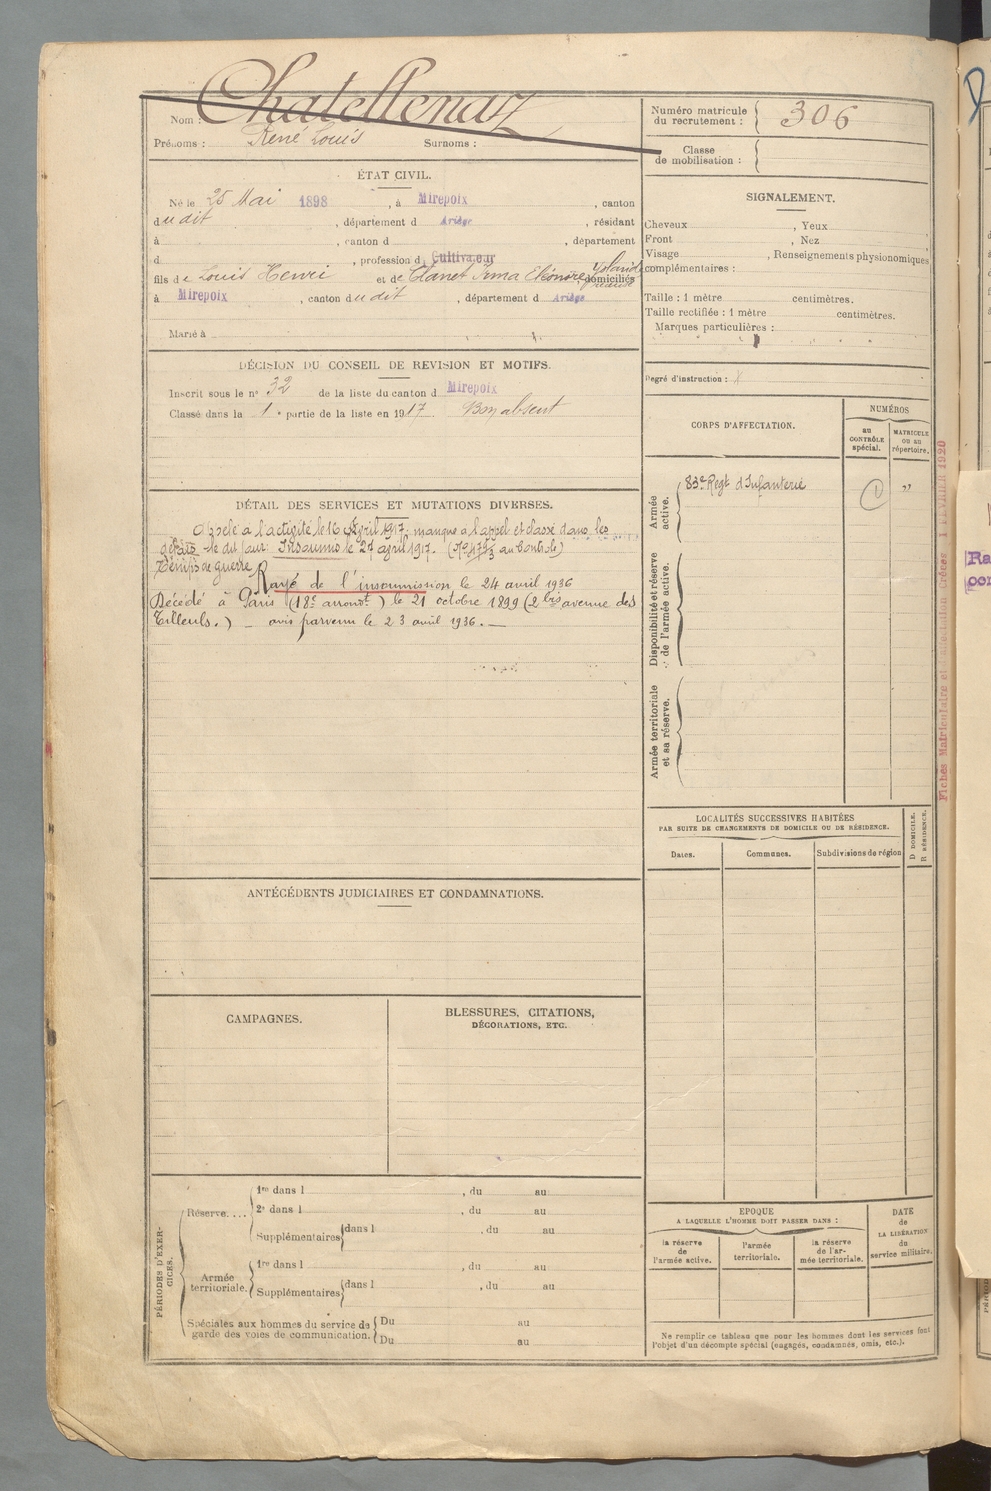 Nom : Chatellenaz
Prénoms : René Louis Surnoms :
Numéro matricule du recrutement : 306
Classe de mobilisation :
ÉTAT CIVIL.
Né le 25 Mai 1898, à Mirepoix, canton
dudit, département d Ariège, résidant
à , canton d , département
d , profession d Cultivateur
fils de Louis Henri et de Clanet Irma Eléonore domiciliés
à Mirepoix, canton dudit, département d Ariège
Marié à
SIGNALEMENT.
Cheveux , Yeux
Front , Nez
Visage , Renseignements physionomiques
complémentaires :
Taille : 1 mètre centimètres.
Taille rectifiée : 1 mètre centimètres.
Marques particulières :
Degré d'instruction :
DÉCISION DU CONSEIL DE REVISION ET MOTIFS.
Inscrit sous le n° 32 de la liste du canton d Mirepoix
Classé dans la 1e partie de la liste en 1917 Bon absent
CORPS D'AFFECTATION.
NUMÉROS
au CONTRÔLE spécial.
MATRICULE OU au répertoire.
Armée active.
83e Regt d'Infanterie
Disponibilité et réserve de l'armée active.
Armée territoriale et sa réserve.
DÉTAIL DES SERVICES ET MUTATIONS DIVERSES.
Appelé à l'activité le 16 Avril 1917; manque à l'appel et classé dans les
le dit jour. Insoumis le 24 avril 1917. au Contrôle)
Temps de guerre
Rayé de l'insoumission le 24 avril 1936
Décédé à Paris (18e arrondt) le 21 octobre 1899 (2 bis avenue des
Tilleuls.) — avis parvenu le 23 avril 1936. —
Fiches Matriculaire et d'affectation Créées 1 FÉVRIER 1920
LOCALITÉS SUCCESSIVES HABITÉES
PAR SUITE DE CHANGEMENTS DE DOMICILE OU DE RÉSIDENCE.
Dates.
Communes.
Subdivisions de région
D DOMICILE.
R RÉSIDENCE.
ANTÉCÉDENTS JUDICIAIRES ET CONDAMNATIONS.
CAMPAGNES.
BLESSURES, CITATIONS,
DÉCORATIONS, ETC.
PÉRIODES D'EXERCICES.
Réserve....
1re dans l , du au
2e dans l , du au
Supplémentaires dans l , du au
Armée territoriale.
1re dans l , du au
Supplémentaires dans l , du au
Spéciales aux hommes du service de Du au
garde des voies de communication. Du au
EPOQUE
A LAQUELLE L'HOMME DOIT PASSER DANS :
la réserve de l'armée active.
l'armée territoriale.
la réserve de l'armée territoriale.
DATE de LA LIBÉRATION du service militaire.
Ne remplir ce tableau que pour les hommes dont les services font
l'objet d'un décompte spécial (engagés, condamnés, omis, etc.).